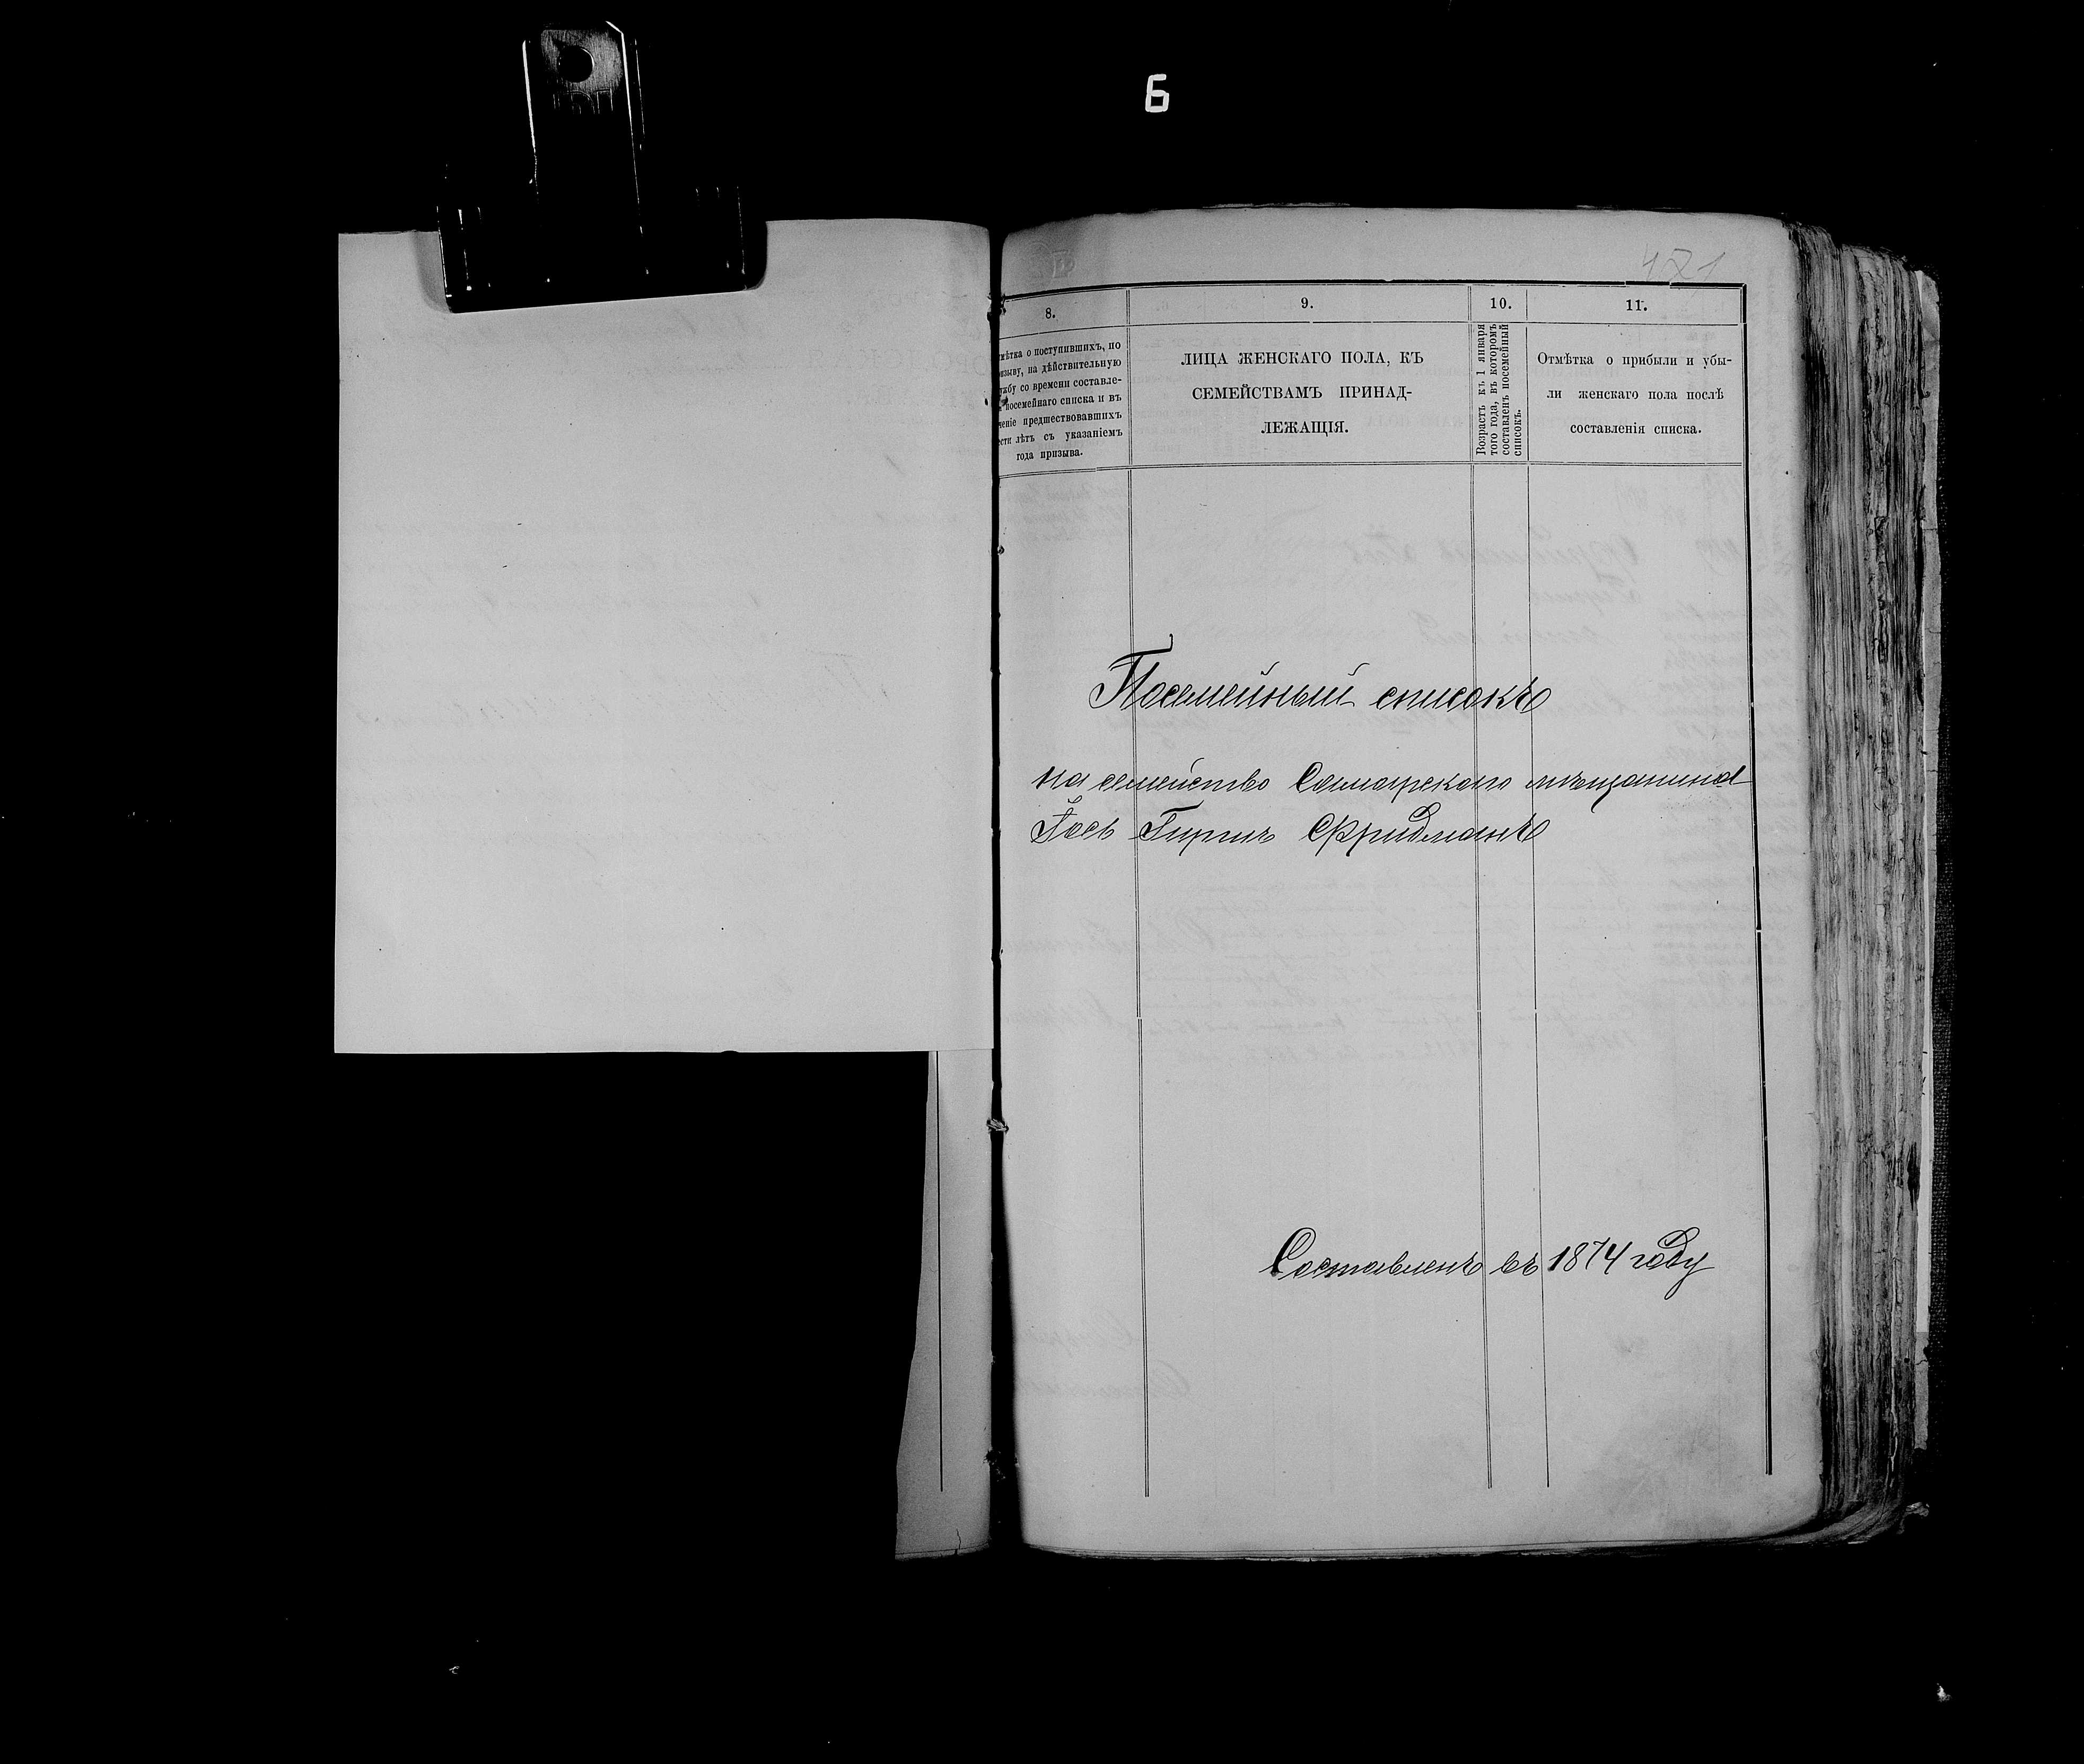 Б
421
8.
9.
10.
11.
мѣтка о поступившихъ, по
изыву, на дѣйствительную
ужбу со времени составле-
посемейнаго списка и въ
ченіе предшествовавшихъ
ести лѣтъ съ указаніемъ
года призыва.
ЛИЦА ЖЕНСКАГО ПОЛА, КЪ
СЕМЕЙСТВАМЪ ПРИНАД-
ЛЕЖАЩІЯ.
Возрастъ къ 1 января
того года, въ которомъ
составленъ посемейный
списокъ.
Отмѣтка о прибыли и убы-
ли женскаго пола послѣ
составленія списка.
Посемейный списокъ
на семейство Самарскаго мѣщанина
Гиршъ Фридманъ
Составленъ въ 1874 году